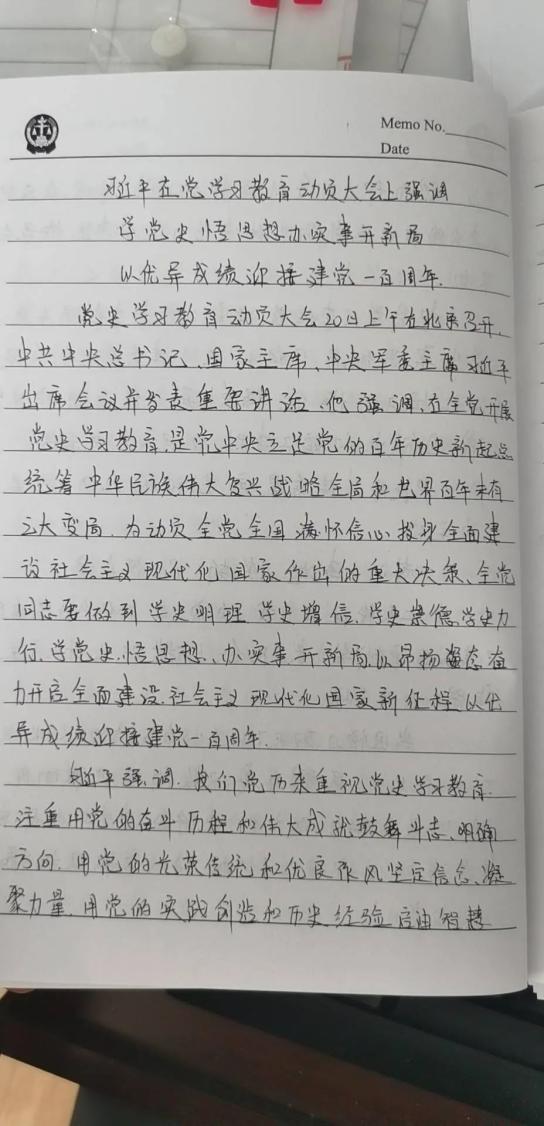 Memo No.
Date
习近平在党学习教育动员大会上强调
学党史悟思想办实事开新局
以优异成绩迎接建党一百周年.
党史学习教育动员大会20日上午在北京召开,
中共中央总书记、国家主席、中央军委主席习近平
出席会议并发表重要讲话、他强调,在全党开展
党史学习教育,是党中央立足党的百年历史新起点
统筹中华民族伟大复兴战略全局和世界百年未有
之大变局、为动员全党全国满怀信心投身全面建
设社会主义现代化国家作出的重大决策、全党
同志要做到学史明理 学史增信、学史崇德、学史力
行、学党史、悟思想、办实事、开新局、以昂扬姿态奋
力开启全面建设社会主义现代化国家新征程、以优
异成绩迎接建党一百周年.
习近平强调、我们党历来重视党史学习教育,
注重用党的奋斗历程和伟大成就鼓舞斗志、明确
方向、用党的光荣传统和优良作风坚定信念、凝
聚力量、用党的实践创造和历史经验启迪智慧